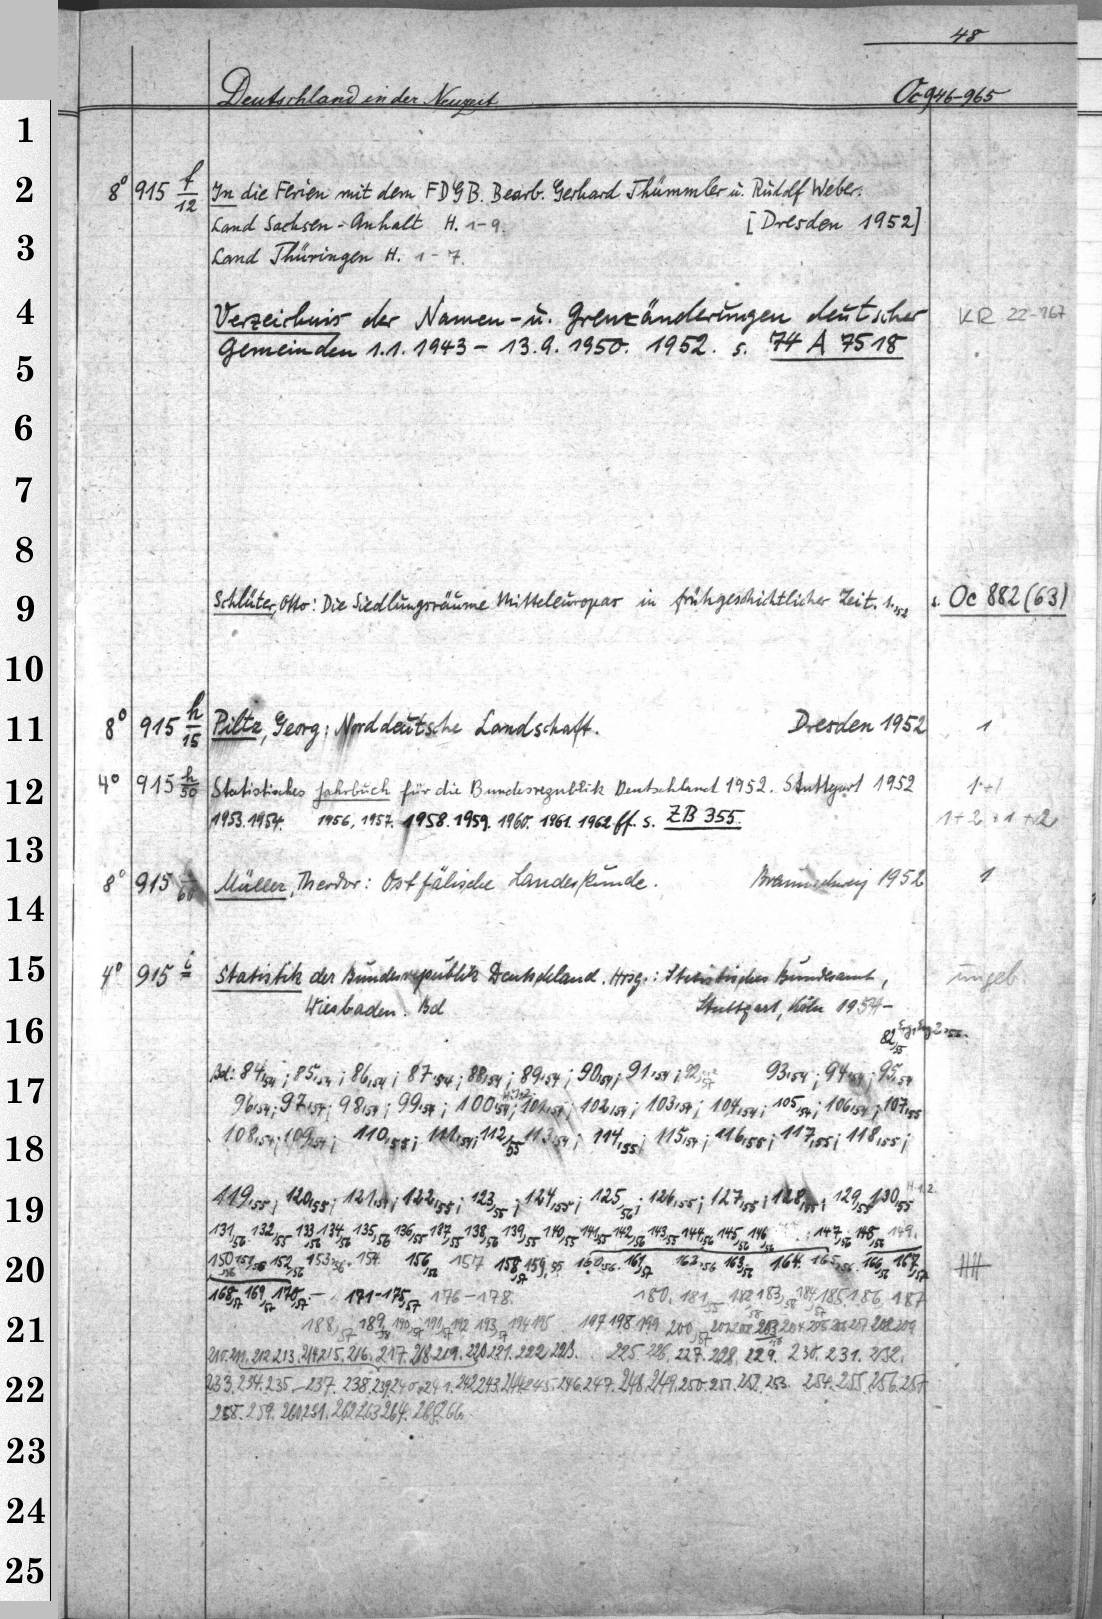 48
Deutschland in der Neuzeit Oc 946-965
1
2 8° 915 f/12 In die Ferien mit dem FDGB. Bearb. Gerhard Thümmler u. Rudolf Weber.
Land Sachsen-Anhalt H. 1-9. [Dresden 1952]
3 Land Thüringen H. 1-7.
4 Verzeichnis der Namen- u. Grenzänderungen deutscher KR 22-167
Gemeinden 1.1.1943 - 13.9.1950. 1952. s. 74 A 7518
5
6
7
8
9 Schlüter, Otto: Die Siedlungsräume Mitteleuropas in frühgeschichtlicher Zeit. 1. 52 s. Oc 882 (63)
10
11 8° 915 h/15 Piltz, Georg: Norddeutsche Landschaft. Dresden 1952 1
12 4° 915 h/50 Statistisches Jahrbuch für die Bundesrepublik Deutschland 1952. Stuttgart 1952 1+1
1953. 1954. 1956, 1957. 1958. 1959. 1960. 1961. 1962 ff. s. ZB 355. 1+2+1+2
13
8° 915 /60 Müller, Theodor: Ostfälische Landeskunde. Braunschweig 1952 1
14
15 4° 915 i Statistik der Bundesrepublik Deutschland. Hrsg.: Statistisches Bundesamt, ungeb.
Wiesbaden. Bd Stuttgart, Köln 1954-
16 82,55
Bd: 84,54; 85,54; 86,54; 87,54; 88,54; 89,54; 90,54; 91,54; 92 93,54; 94,54; 95,54
17 96,54; 97,54; 98,54; 99,54; 100,54; 101,54; 102,54; 103,54; 104,54; 105,54; 106,54; 107,55
18 108,54; 109,54; 110,55; 111,54; 112,55 113,54; 114,55; 115,54; 116,55; 117,55; 118,55;
19 119,55; 120,55; 121,54; 122,55; 123,55; 124,55; 125,56; 126,55; 127,55; 128,55; 129,55 130,55 H.1.2
131,56 132,55 133,56 134,56 135,56 136,55 137,55 138,56 139,55 140,55 141,55 142,56 143,55 144,56 145,56 146,56 147,56 148,56 149.
20 150 151,56 152,56 153,56 154. 156,56 157 158,57 159,55 160,56. 161,57 162,56 163,56 164. 165,56. 166,56 167,57
168,57 169,57 170,57. - 171-175,57 176-178. 180. 181 182 183 184 185 186 187
21 188, 189, 190, 191, 192 193, 194 195 197 198 199 200 201 202 203 204 205 206 207 208 209
210. 211. 212 213. 214 215. 216. 217. 218 219. 220 221. 222 223. 225 226. 227. 228. 229. 230. 231. 232.
22 233. 234. 235. - 237. 238. 239 240. 241. 242 243. 244 245. 246. 247. 248. 249. 250. 251. 252. 253. 254. 255. 256. 257
258. 259. 260 261. 262 263 264. 265 266.
23
24
25